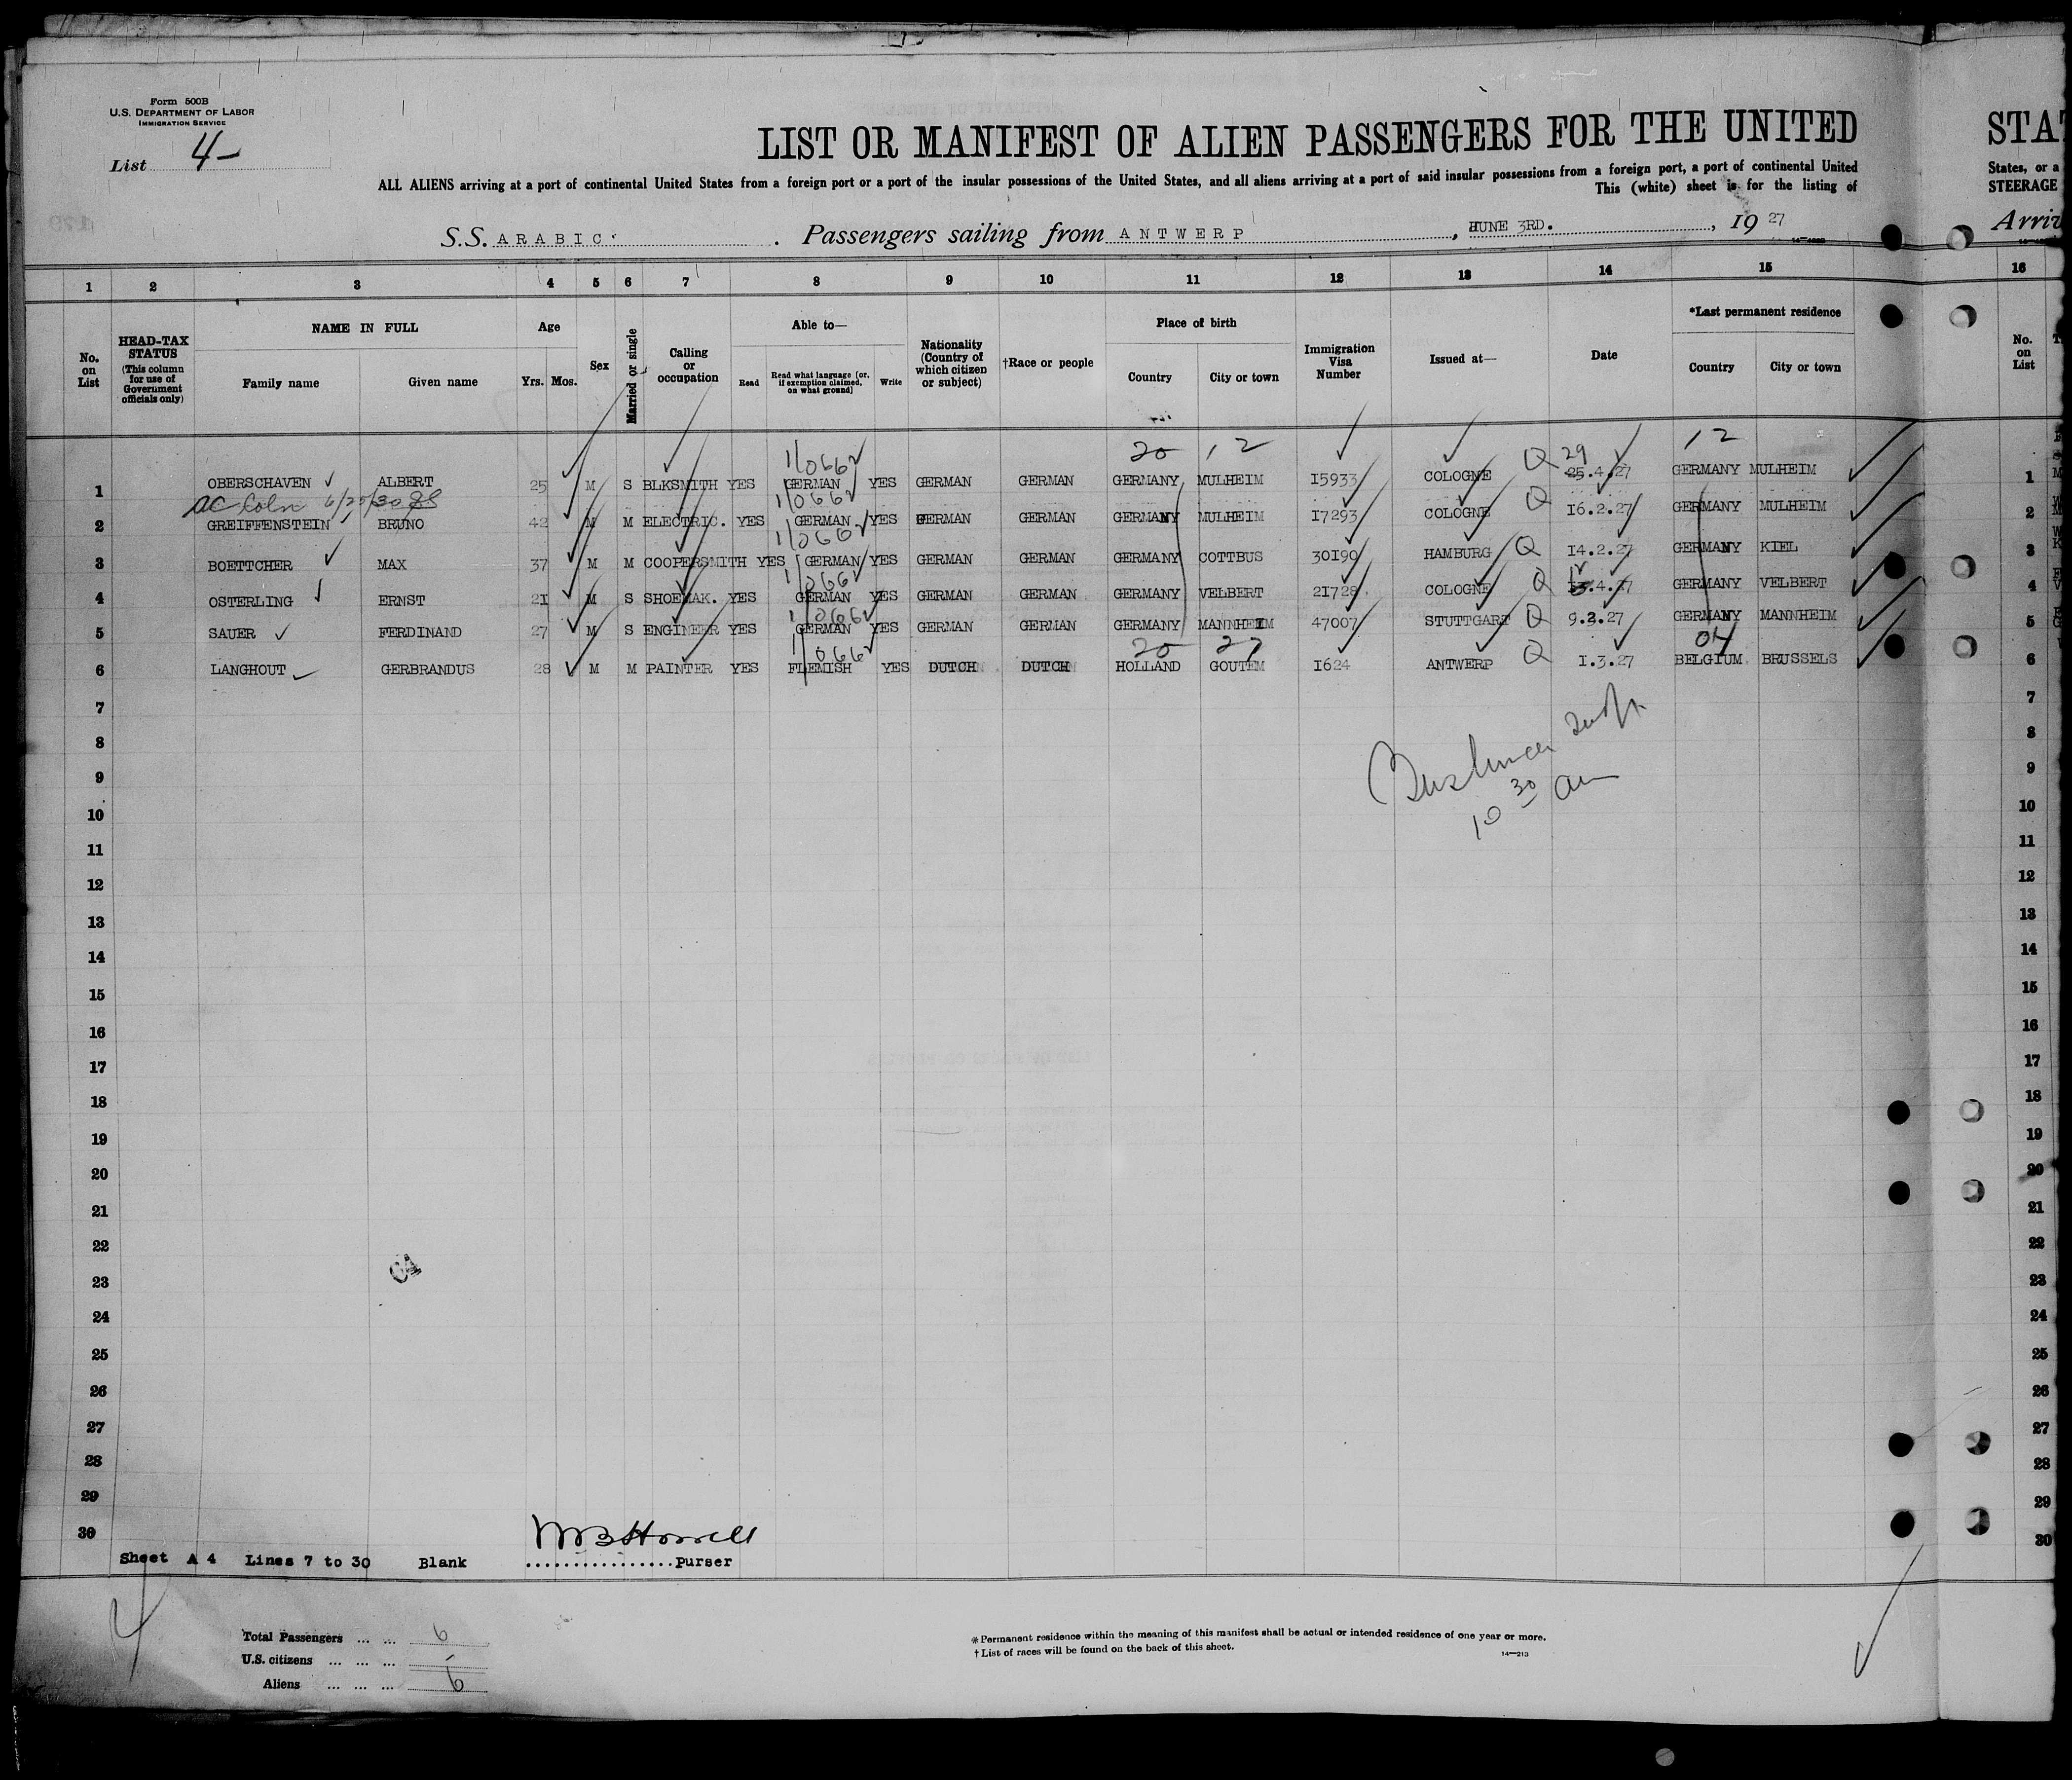 Form 500B
U.S. DEPARTMENT OF LABOR
IMMIGRATION SERVICE
List 4-
LIST OR MANIFEST OF ALIEN PASSENGERS FOR THE UNITED STA
ALL ALIENS arriving at a port of continental United States from a foreign port or a port of the insular possessions of the United States, and all aliens arriving at a port of said insular possessions from a foreign port, a port of continental United States, or a
This (white) sheet is for the listing of STEERAGE
S.S. ARABIC. Passengers sailing from ANTWERP, HUNE 3RD., 1927 Arriv
1 2 3 4 5 6 7 8 9 10 11 12 13 14 15 16
No. on List
HEAD-TAX STATUS (This column for use of Government officials only)
NAME IN FULL
Family name Given name
Age
Yrs. Mos.
Sex
Married or single
Calling or occupation
Able to—
Read
Read what language [or, if exemption claimed, on what ground]
Write
Nationality (Country of which citizen or subject)
†Race or people
Place of birth
Country City or town
Immigration Visa Number
Issued at—
Date
*Last permanent residence
Country City or town
No. on List
1/0662 20 12 29 12
1 OBERSCHAVEN ALBERT 25 M S BLKSMITH YES GERMAN YES GERMAN GERMAN GERMANY MULHEIM 15933 COLOGNE Q 25.4.27 GERMANY MULHEIM 1
1/0662
2 GREIFFENSTEIN BRUNO 42 M M ELECTRIC. YES GERMAN YES GERMAN GERMAN GERMANY MULHEIM 17293 COLOGNE Q 16.2.27 GERMANY MULHEIM 2
1/0662
3 BOETTCHER MAX 37 M M COOPERSMITH YES GERMAN YES GERMAN GERMAN GERMANY COTTBUS 30190 HAMBURG Q 14.2.27 GERMANY KIEL 3
1/0662
4 OSTERLING ERNST 21 M S SHOEMAK. YES GERMAN YES GERMAN GERMAN GERMANY VELBERT 21728 COLOGNE Q .4.27 GERMANY VELBERT 4
1/0662
5 SAUER FERDINAND 27 M S ENGINEER YES GERMAN YES GERMAN GERMAN GERMANY MANNHEIM 47007 STUTTGART Q 9.3.27 GERMANY MANNHEIM 5
1/0662 20 27 04
6 LANGHOUT GERBRANDUS 28 M M PAINTER YES FLEMISH YES DUTCH DUTCH HOLLAND GOUTEM 1624 ANTWERP Q 1.3.27 BELGIUM BRUSSELS 6
7 7
8 8
9 9
10 30 am
10 10
11 11
12 12
13 13
14 14
15 15
16 16
17 17
18 18
19 19
20 20
21 21
22 22
23 23
24 24
25 25
26 26
27 27
28 28
29 29
30 30
Sheet A 4 Lines 7 to 30 Blank ................Purser
4
Total Passengers ... ... 6
U.S. citizens ... ... ... -
Aliens ... ... ... 6
*Permanent residence within the meaning of this manifest shall be actual or intended residence of one year or more.
†List of races will be found on the back of this sheet.
14—213